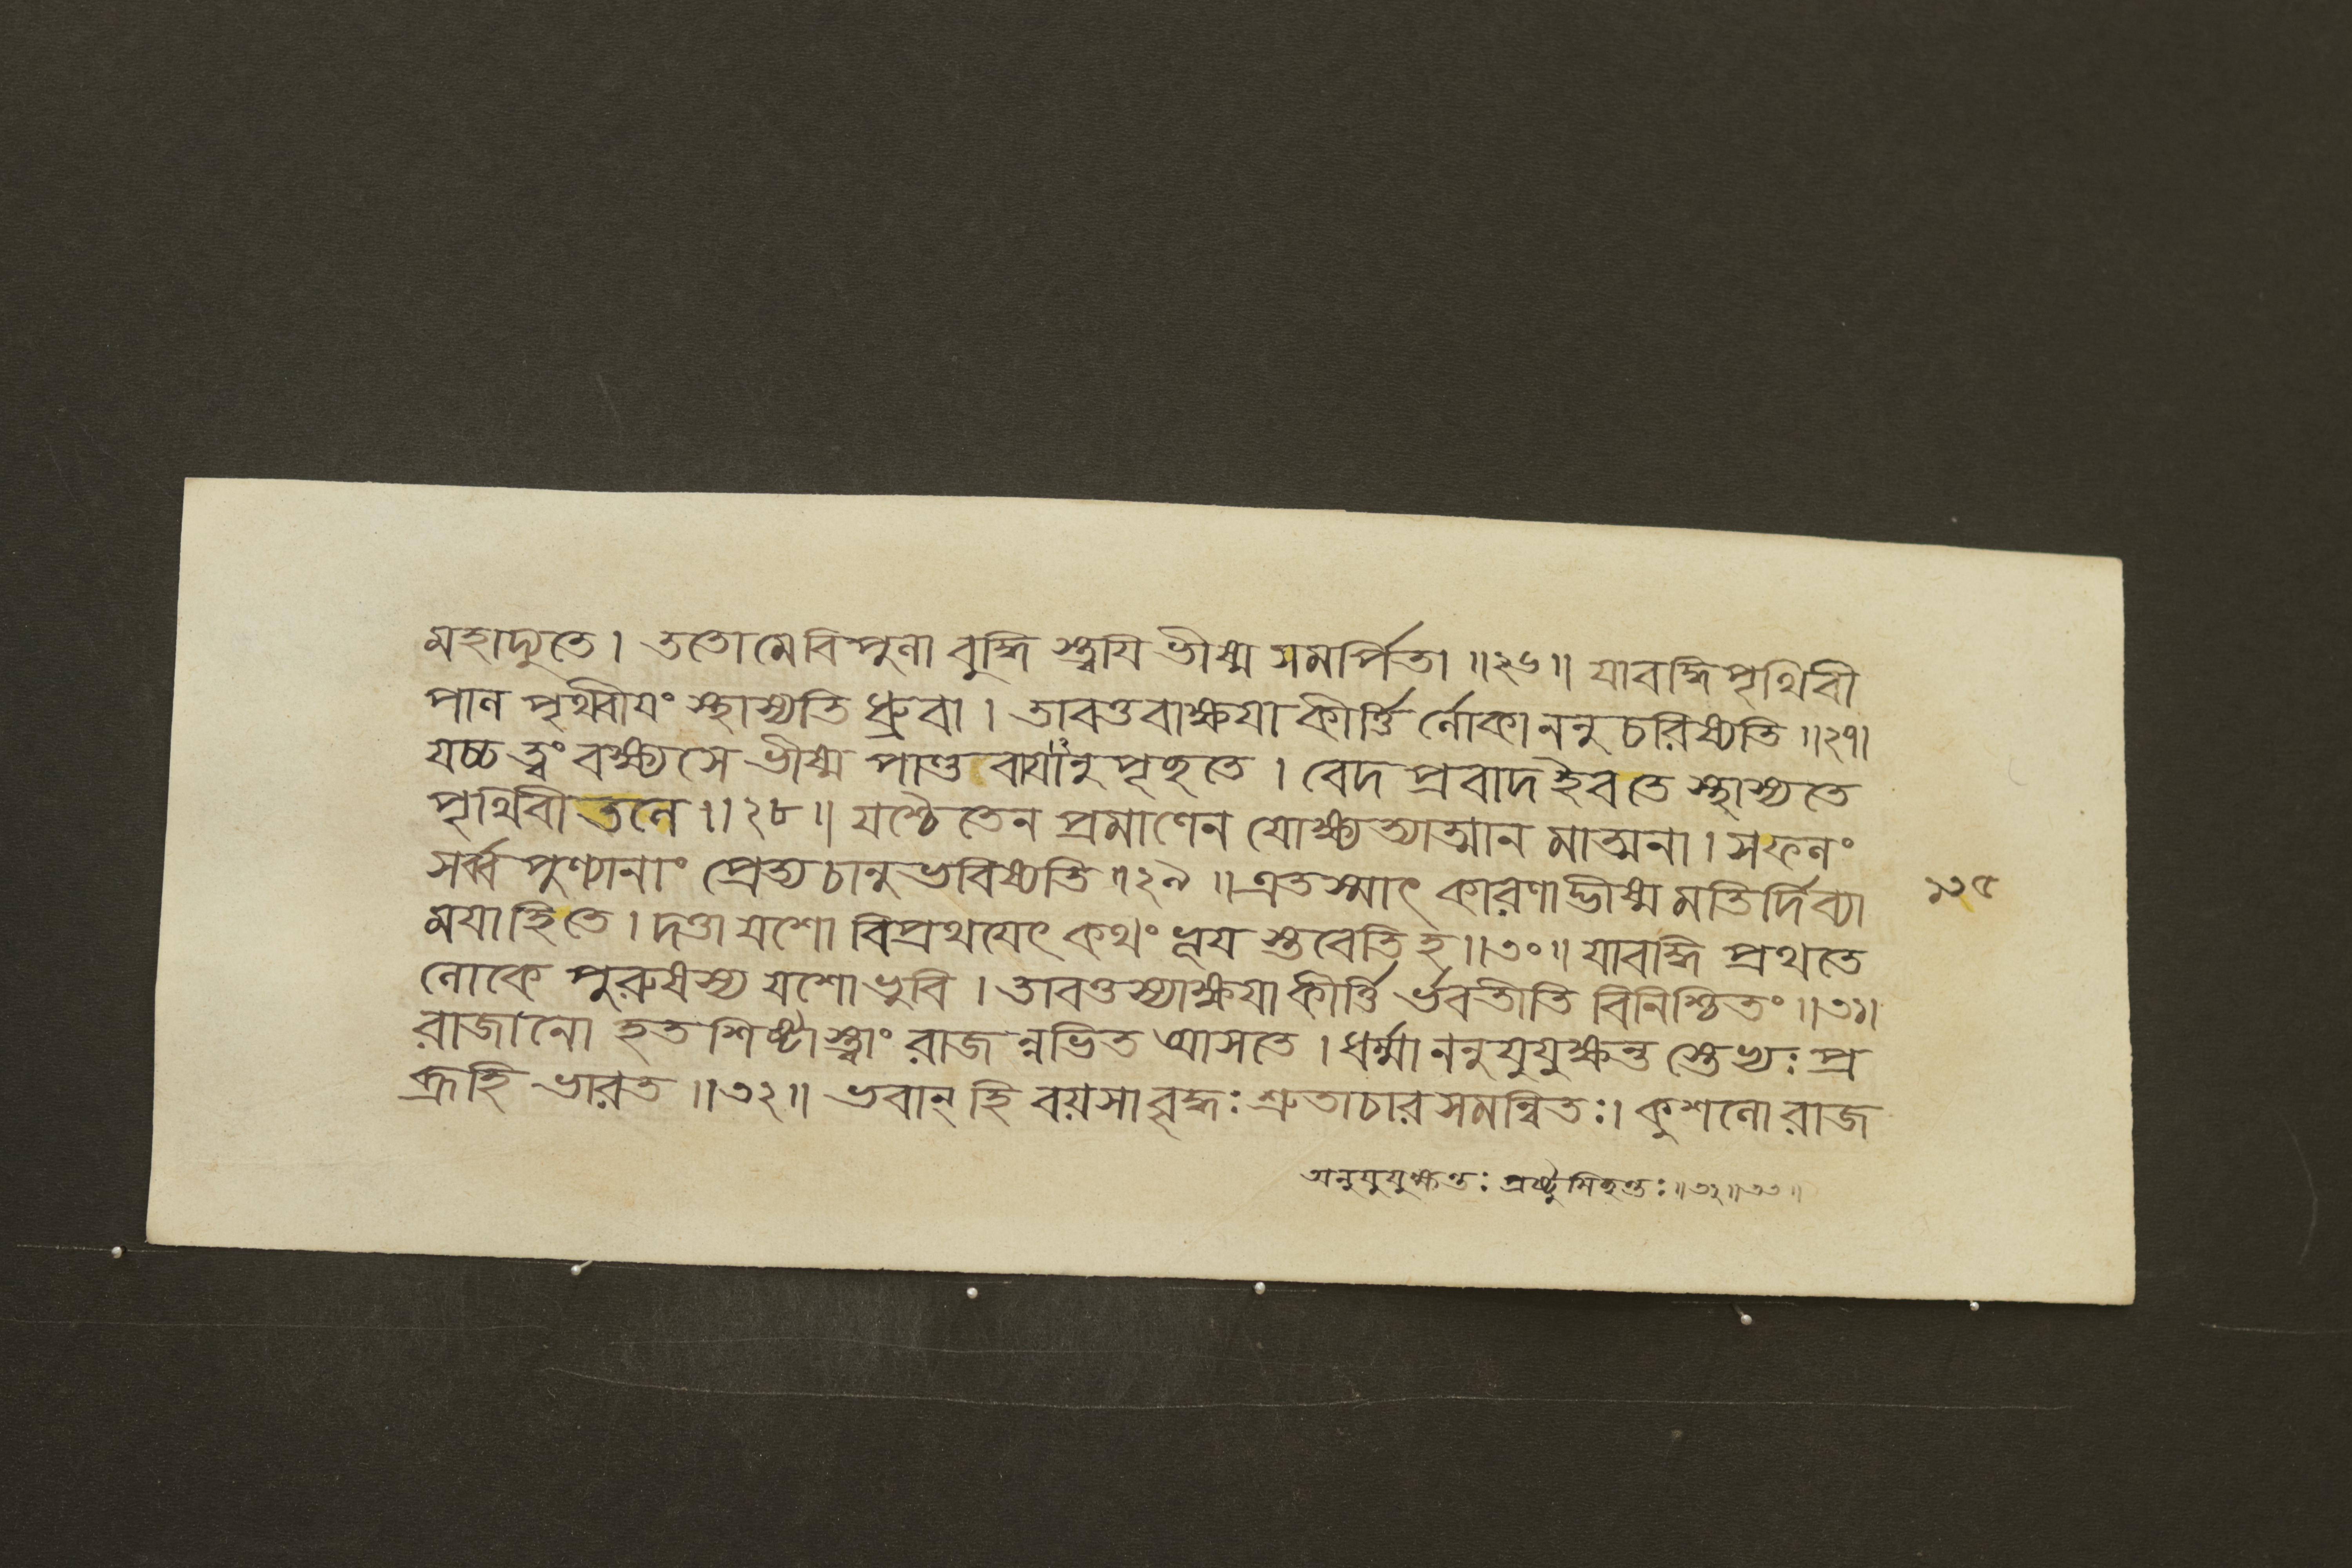 মহাদ্যুতে। ততো মে বিপুলা বুদ্ধি স্ত্বয়ি ভীষ্ম সমর্পিতা॥২৬॥ যাবদ্ধি পৃথিবী
পাল পৃথ্বীয়ং স্থাস্যতি ধ্রুবা। তাবত্তবাক্ষয়া কীর্ত্তি র্লোকাননু চরিষ্যতি॥২৭।
যচ্চ ত্বং বক্ষ্যসে ভীষ্ম পাণ্ডবায়ানু পৃচ্ছতে। বেদ প্রবাদ ইব তে স্থাস্যতে
পৃথিবী তলে॥২৮॥ যশ্চৈতেন প্রমাণেন যোক্ষ্যত্যাত্মান মাত্মনা। স ফলং
সর্ব্ব পুণ্যানাং প্রেত্য চানুভবিষ্যতি॥২৯॥ এতস্মাৎ কারণাদ্ভীষ্ম মতির্দিব্যা
ময়াহি তে। দত্তা যশো বিপ্রথয়েৎ কথং ভূয় স্তবেতি হ॥৩০॥ যাবদ্ধি প্রথতে
লোকে পুরুষস্য যশো ভুবি। তাবত্তস্যাক্ষয়া কীর্ত্তি র্ভবতীতি বিনিশ্চিতং॥৩১।
রাজানো হত শিষ্টাস্ত্বাং রাজ ন্নভিত আসতে। ধর্ম্মাননুযুযুক্ষন্ত স্তেভ্যঃ প্র
ব্রূহি ভারত॥৩২॥ ভবান্ হি বয়সা বৃদ্ধঃ শ্রুতাচার সমন্বিতঃ। কুশলো রাজ
১৩৫
অনুযুযুক্ষন্তঃ প্রষ্টুমিচ্ছন্তঃ॥৩২॥৩৩॥